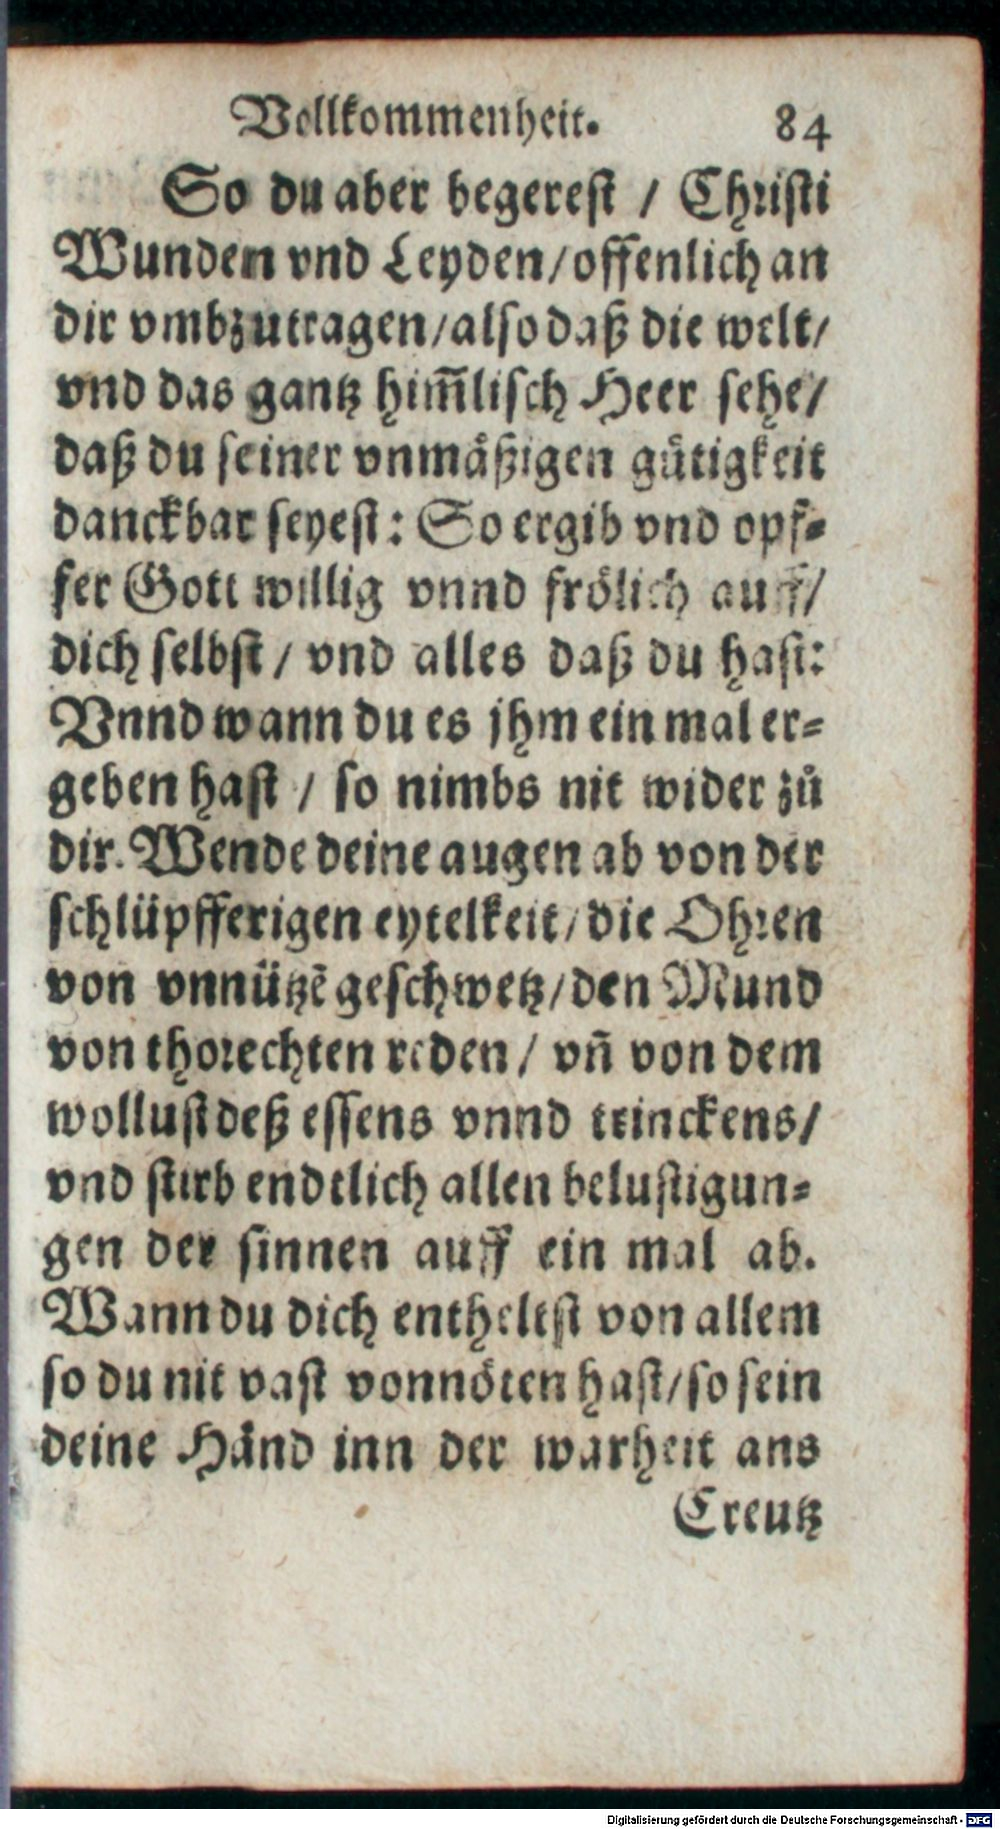 Vollkommenheit. 84
So du aber begerest / Christi
Wunden vnd Leyden/offenlich an
dir vmbzutragen/also daß die welt/
vnd das gantz him̃lisch Heer sehe/
daß du seiner vnmaͤßigen guͤtigkeit
danckbar seyest: So ergib vnd opf-
fer Gott willig vnnd froͤlich auff/
dich selbst / vnd alles daß du hast:
Vnnd wann du es jhm ein mal er-
geben hast / so nimbs nit wider zů
dir. Wende deine augen ab von der
schlüpfferigen eytelkeit/die Ohren
von vnnützẽ geschwetz/den Mund
von thorechten reden / vñ von dem
wollust deß essens vnnd trinckens/
vnd stirb endtlich allen belustigun-
gen der sinnen auff ein mal ab.
Wann du dichentheltst von allem
so du nit vast vonnöten hast/so sein
deine Haͤnd inn der warheit ans
Creutz
Digitalisierung gefördert durch die Deutsche Forschungsgemeinschaft - DFG